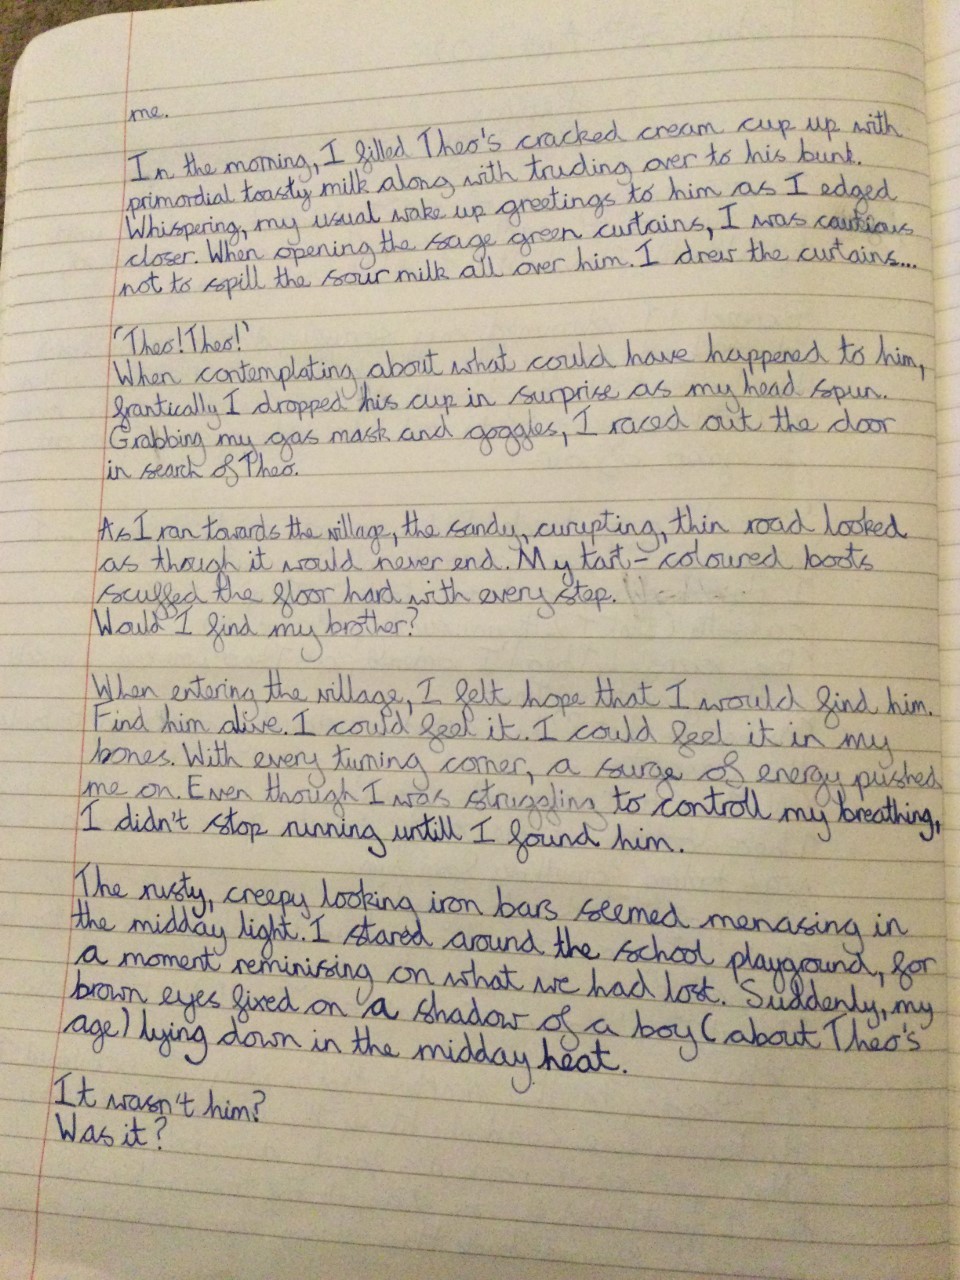 me.
In the morning, I filled Theo's cracked cream cup up with
primordial toasty milk along with truding over to his bunk.
Whispering, my usual wake up greetings to him as I edged
closer. When opening the sage green curtains, I was cautious
not to spill the sour milk all over him. I drew the curtains...
'Theo! Theo!'
When contemplating about what could have happened to him,
frantically I dropped his cup in surprise as my head spun.
Grabbing my gas mask and goggles, I raced out the door
in search of Theo.
As I ran towards the village, the sandy, curupting, thin road looked
as though it would never end. My tart-coloured boots
scuffed the floor hard with every step.
Would I find my brother?
When entering the village, I felt hope that I would find him.
Find him alive. I could feel it. I could feel it in my
bones. With every turning corner, a surge of energy pushed
me on. Even though I was struggling to controll my breathing,
I didn't stop running untill I found him.
The rusty, creepy looking iron bars seemed menasing in
the midday light. I stared around the school playground, for
a moment reminising on what we had lost. Suddenly, my
brown eyes fixed on a shadow of a boy (about Theo's
age) lying down in the midday heat.
It wasn't him?
Was it?